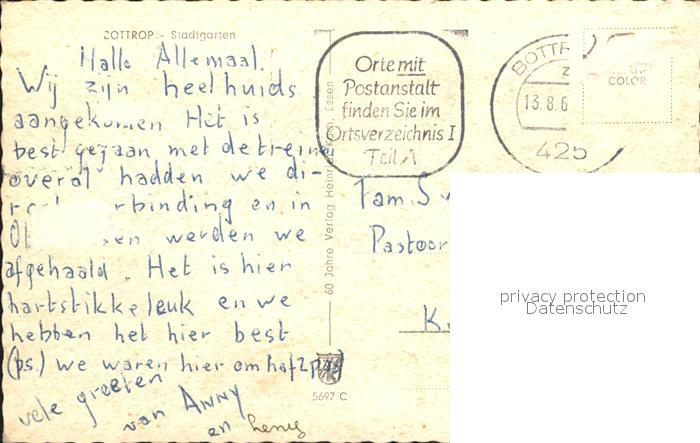 BOTTROP - Stadtgarten
Hallo Allemaal.
Wij zijn heelhuids
aangekomen Het is
best gegaan met de treinen
overal hadden we di-
rbinding en in
werden we
afgehaald. Het is hier
hartstikke leuk en we
hebben het hier best
(ps.) we waren hier om half 2
vele groeten
van ANNY
en henny
60 Jahre Verlag Essen
5697 C
Orte mit
Postanstalt
finden Sie im
Ortsverzeichnis I
Teil
BOTTR
13.8.6
425
COLOR
Fam. S
Pastoor
K.
privacy protection
Datenschutz